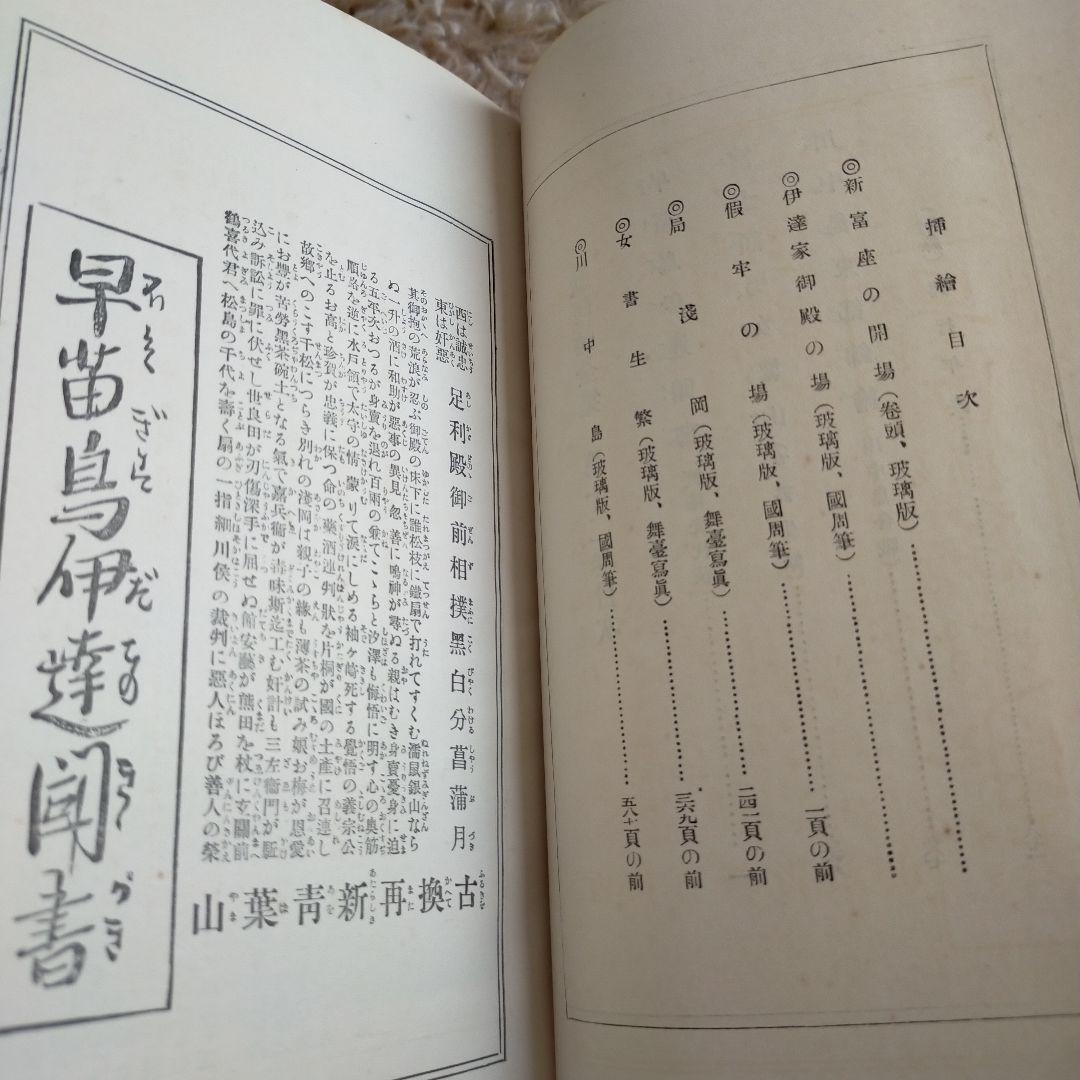 挿繪目次
◎新富座の開場(卷頭、玻璃版)
◎伊達家御殿の場(玻璃版、國周筆)…………一頁の前
◎假牢の場(玻璃版、國周筆)…………二四二頁の前
◎局淺岡(玻璃版、舞臺寫眞)…………三六九頁の前
◎女書生繁(玻璃版、舞臺寫眞)
◎川中島(玻璃版、國周筆)…………五八十頁の前
西は誠忠
東は奸惡
足利殿御前相撲黑白分菖蒲月
其御抱の荒浪が忍ぶ御殿の床下に誰松枝、鐵扇で打れてすくむ濡鼠銀山なら
ぬ一升の酒に和助が惡事の異見、忽善に鳴神が尋ぬる親はむき身賣憂身に迫
る五平次おつるが身賣を退れ百兩の兼てこゝらと汐澤も悔悟に明す心の奥筋
順路を逆に水戸領で太守の情蒙りて涙にしめる袖ヶ崎死する覺悟の義宗公
を止るお高と珍賀が忠義に保つ命の藥酒連判狀を片桐が國の土産に召連し
故鄕へのこす千松につらき別れの淺岡は親子の緣も薄茶の試み娘お梅が恩愛
にお豐が苦勞黑茶碗土となる氣で嘉兵衞が淸味斯迄工む奸計も三左衞門が駈
込み訴訟に罪に伏せし世良田が刃傷深手に屈せぬ館安藝が熊田を杖に玄關前
鶴喜代君へ松島の千代を壽く扇の一指細川侯の裁判に惡人ほろび善人の榮
古換再新靑葉山
早苗鳥伊達聞書